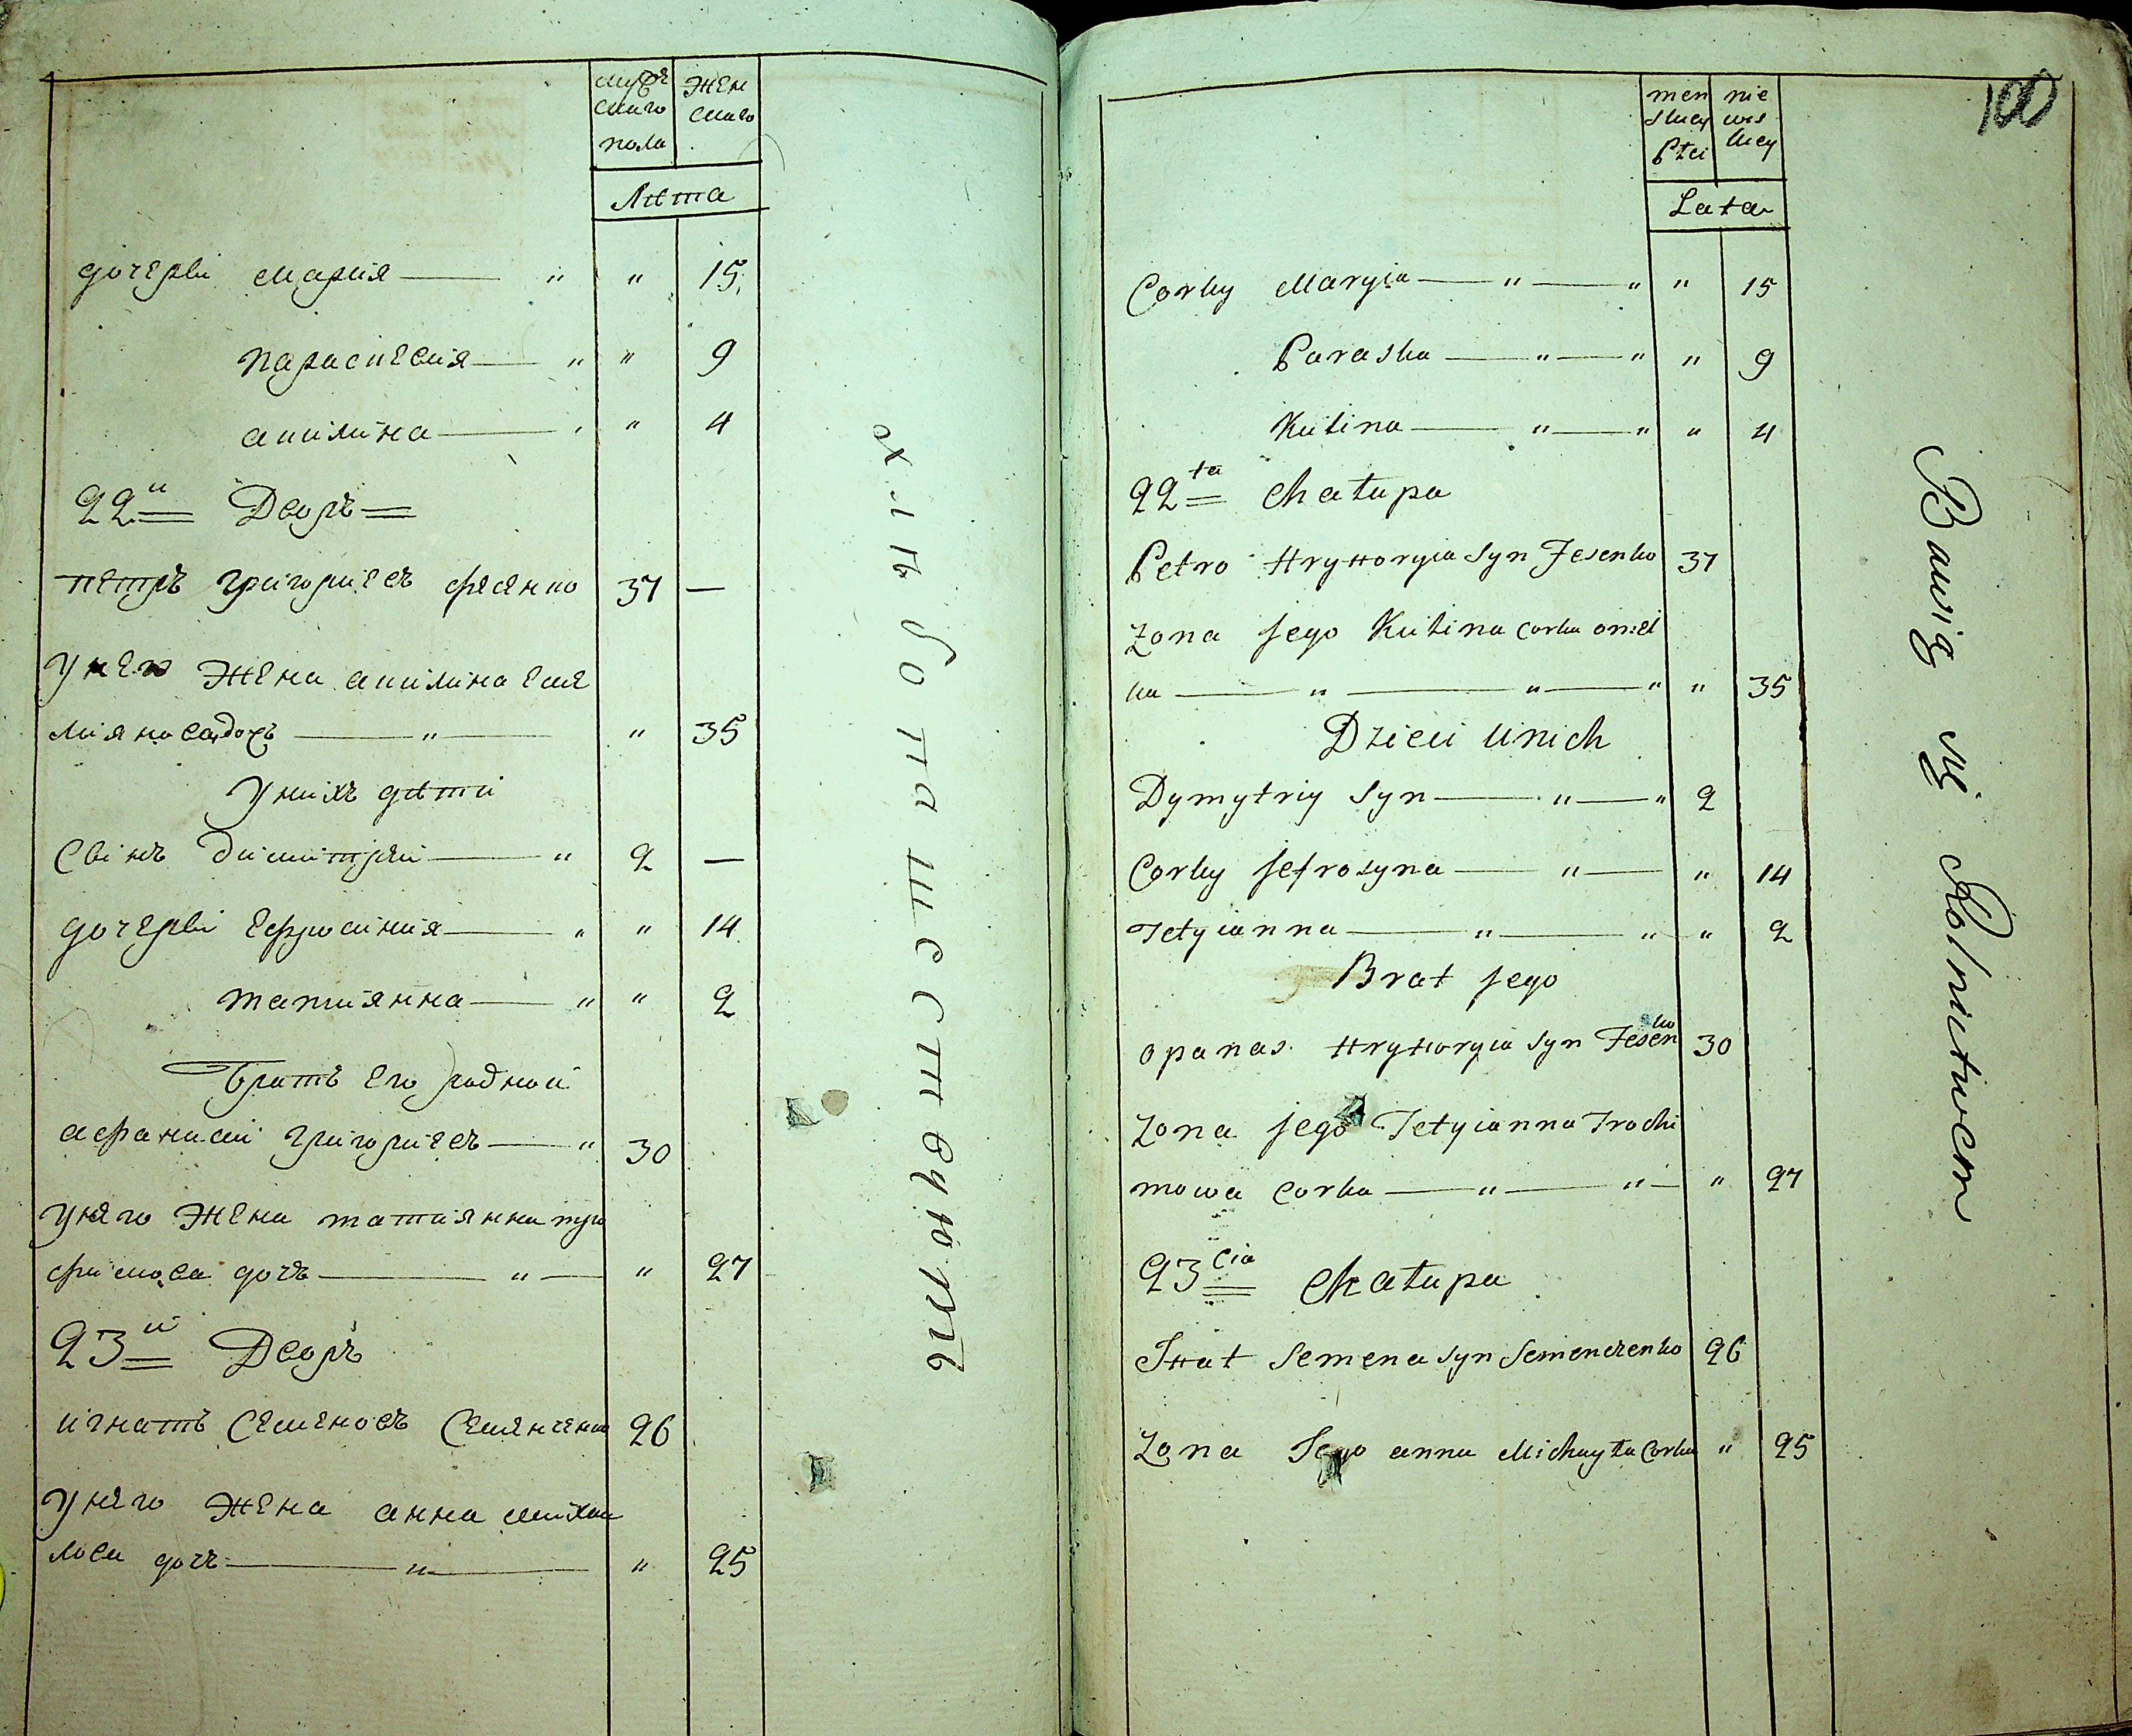 мужескаго пола
женскаго
Лѣта
дочерѣи Мария — " " 15
Параскевия — " " 9
акилина — " " 4
22й Дворъ
петръ григориевъ фесенко 37 —
у него жена акилина еме
лиянова дочь — " " 35
У нихъ дѣти
Сынъ димитрий — " 2 —
дочерѣи Ефросиния — " " 14
татиянна — " " 2
Братъ его родной
афанасий григориевъ — " 30
у него жена татиянна тро
фимова дочь — " " 27
23й Дворъ
игнатъ Семеновъ Семенченко 26
у него жена анна михаи
лова дочь — " " 25
хлѣбопашествуютъ
100
men
skiey
Płci
nie
wis
kiey
Lata
Corky Maryia — " — " " 15
Paraska — " — " " 9
Kulina — " — " " 4
22ta Chałupa
Petro Hryhoryia Syn Fesenko 37
Zona jego Kulina corka omel
ka — " — " — " " 35
Dzieci u nich
Dymytriy Syn — " — " 2
Corky jefrosyna — " — " 14
Tetyianna — " — " " 2
Brat jego
opanas Hryhoryia Syn Fesenko 30
Zona jego Tetyianna Trochi
mowa Corka — " — " — " 27
23cia Chałupa
Ihnat Semena Syn Semenczenko 26
Zona Jego anna Michayła Corka " 25
Bawią się Rolnictwem